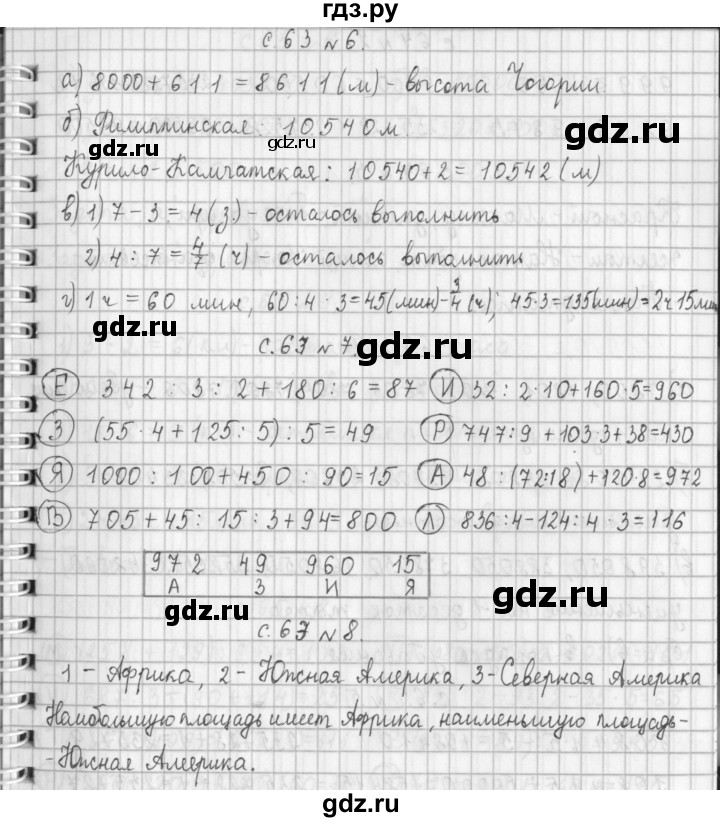 гдз.ру
с.63 №6.
а) 8000+611=8611(м) - высота Чогории
б) Филиппинская: 10540м.
gdz.ru
gdz.ru
gdz.ru
Курило-Камчатская: 10540+2=10542(м)
в) 1) 7-3=4(з.) - осталось выполнить
2) 4:7=4/7(ч) - осталось выполнить
г) 1ч=60 мин, 60:4·3=45(мин)-3/4(ч); 45·3=135(мин)=2ч15мин
gdz.ru
с.63 №7.
gdz.ru
Е 342:3:2+180:6=87 И 32:2·10+160·5=960
З (55·4+125:5):5=49 Р 747:9+103·3+38=430
Я 1000:100+450:90=15 А 48:(72:18)+120·8=972
В 705+45:15:3+94=800 Л 836:4-124:4·3=116
972 49 960 15
А З И Я
gdz.ru
gdz.ru
с.63 №8.
1 - Африка, 2 - Южная Америка, 3-Северная Америка
Наибольшую площадь имеет Африка, наименьшую площадь-
-Южная Америка.
gdz.ru
gdz.ru
gdz.ru